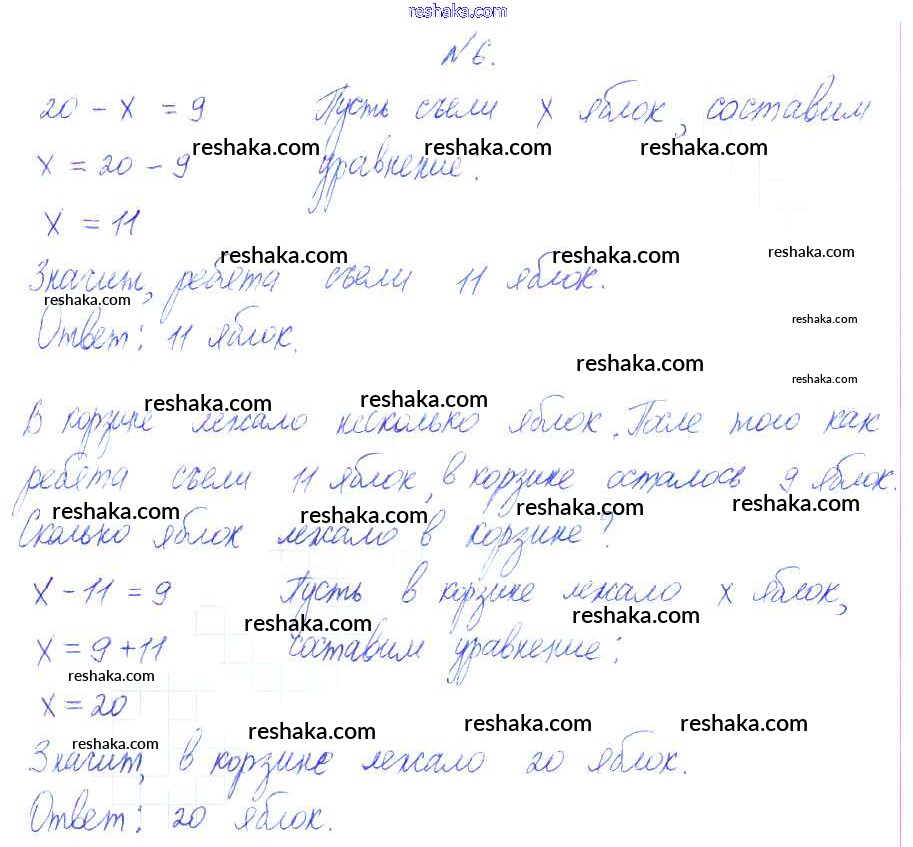 reshaka.com
№6.
20 - x = 9 Пусть съели x яблок, составим
x = 20 - 9 уравнение.
reshaka.com reshaka.com reshaka.com
x = 11
reshaka.com reshaka.com reshaka.com
Значит, ребята съели 11 яблок.
reshaka.com
reshaka.com
Ответ: 11 яблок.
reshaka.com
reshaka.com
reshaka.com reshaka.com
В корзине лежало несколько яблок. После того как
ребята съели 11 яблок, в корзине осталось 9 яблок.
reshaka.com reshaka.com reshaka.com reshaka.com
Сколько яблок лежало в корзине?
x - 11 = 9 Пусть в корзине лежало x яблок,
reshaka.com reshaka.com
x = 9 + 11 составим уравнение:
reshaka.com
x = 20
reshaka.com reshaka.com reshaka.com
reshaka.com
Значит, в корзине лежало 20 яблок.
Ответ: 20 яблок.